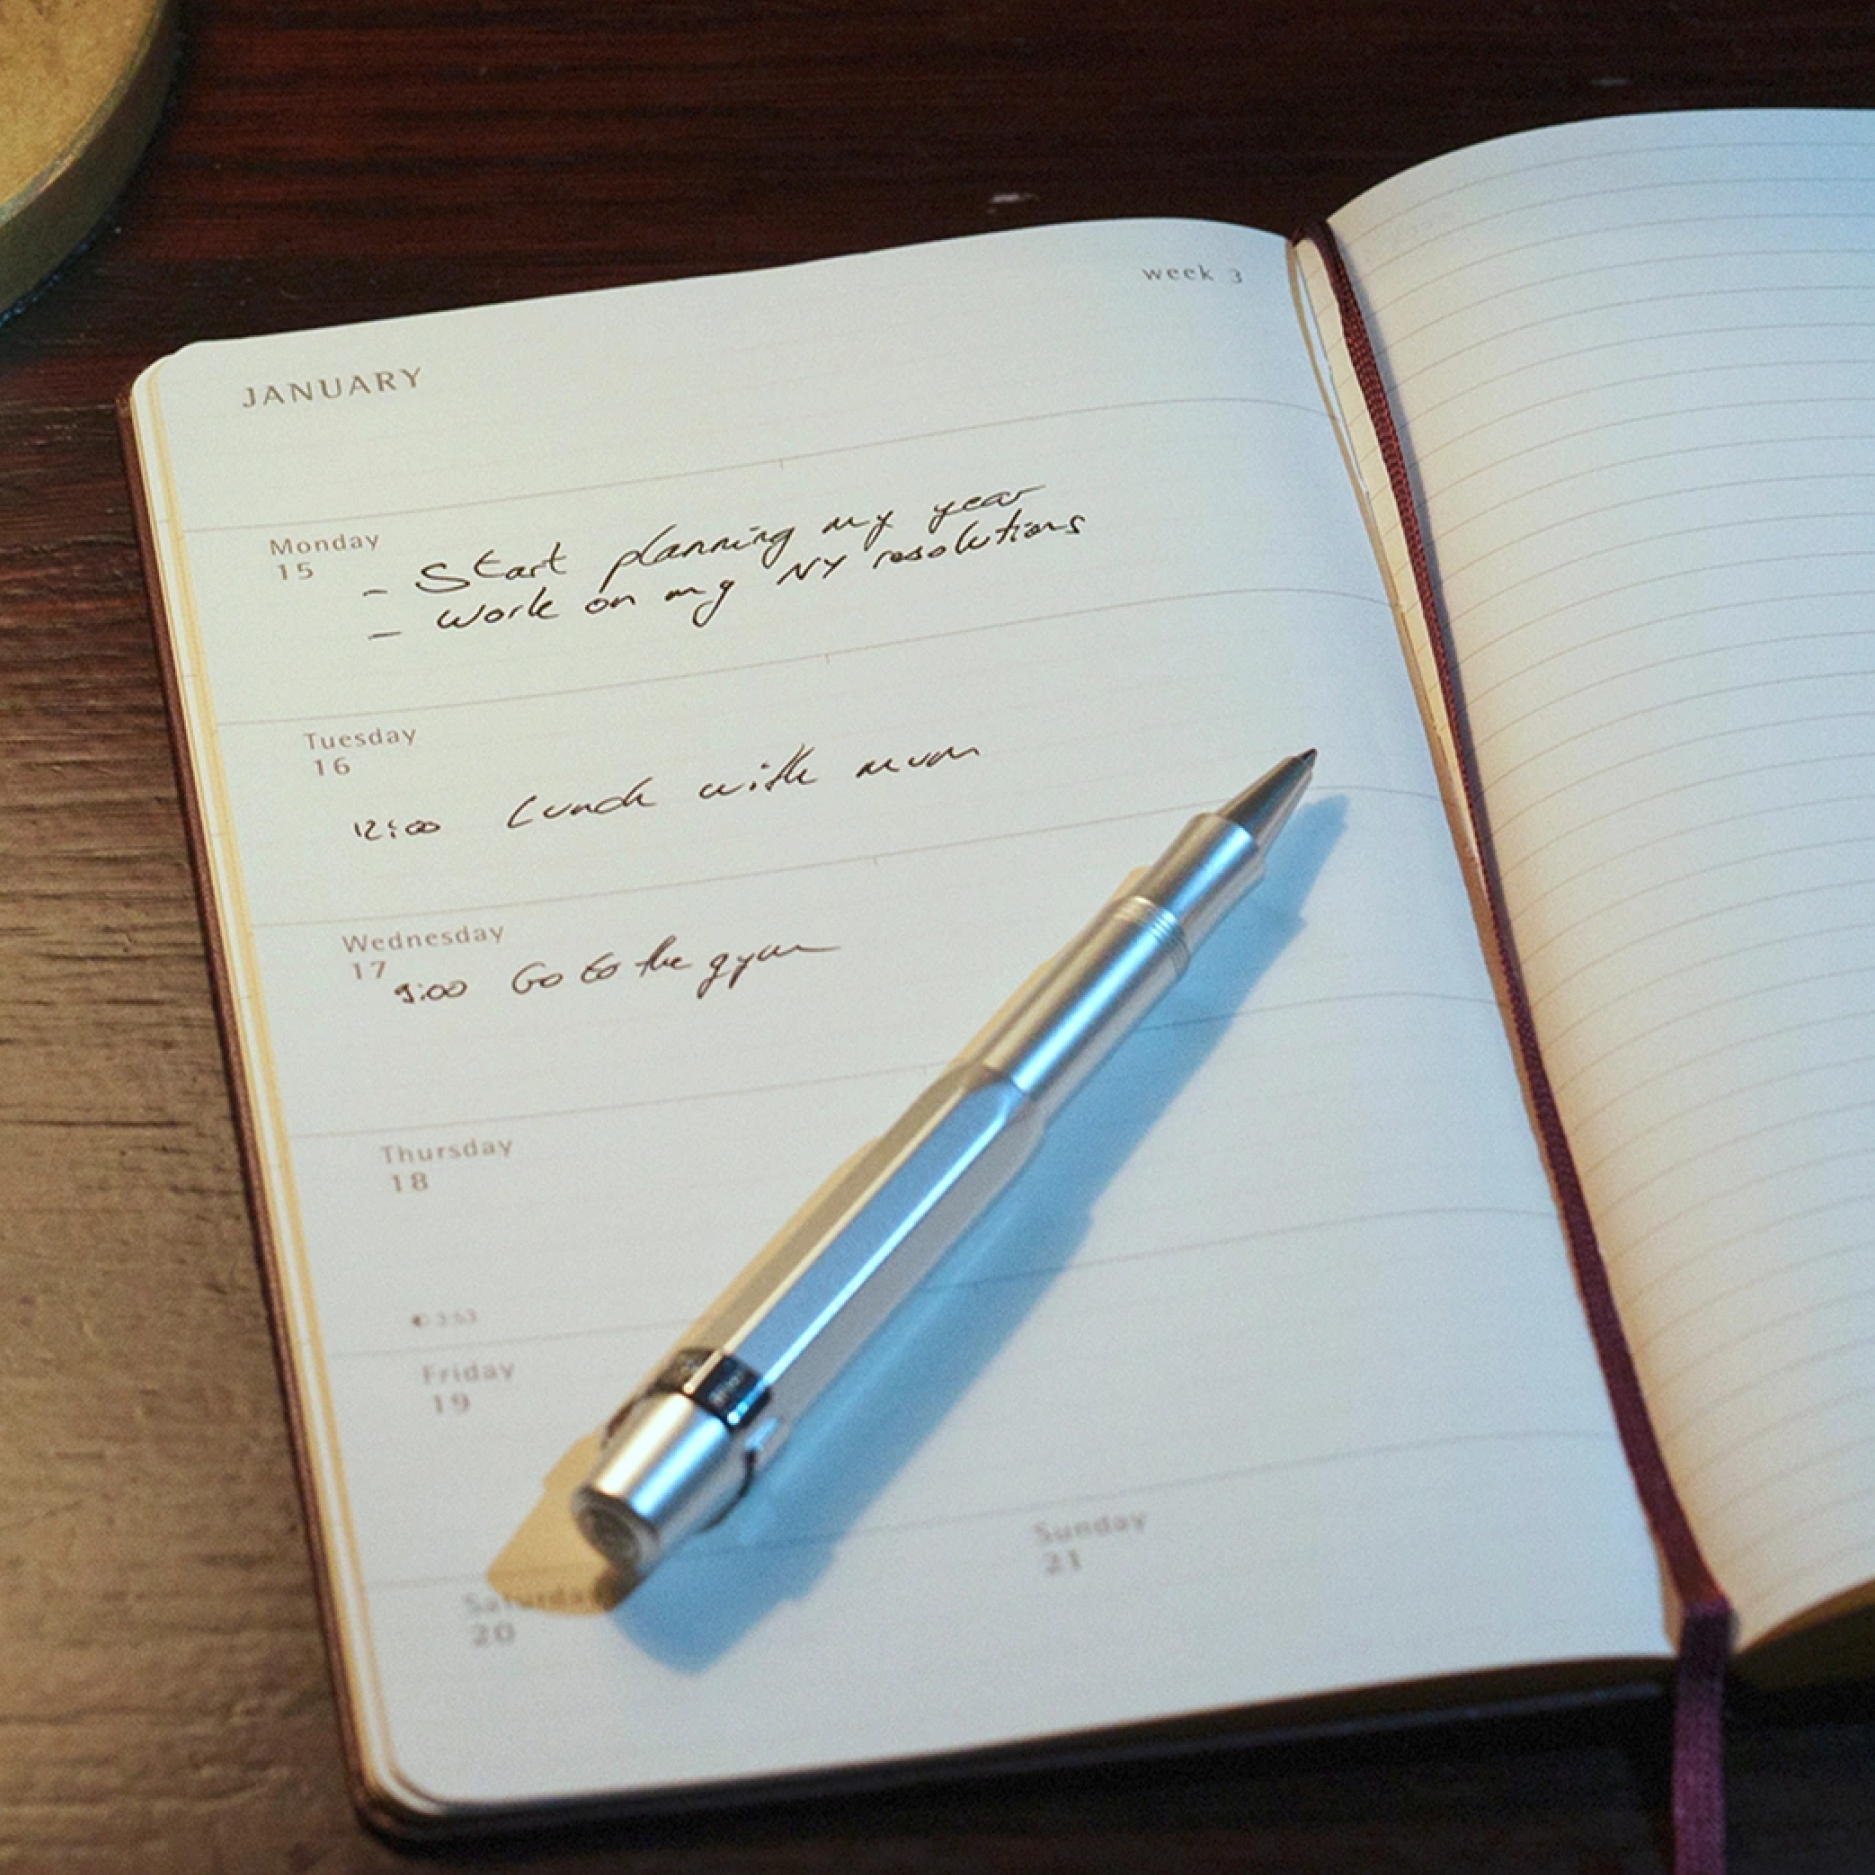 week 3
JANUARY
Monday
15
- Start planning my year
- work on my NY resolutions
Tuesday
16
12:00 Lunch with mum
Wednesday
17
9:00 Go to the gym
Thursday
18
3:53
Friday
19
Saturday
20
Sunday
21